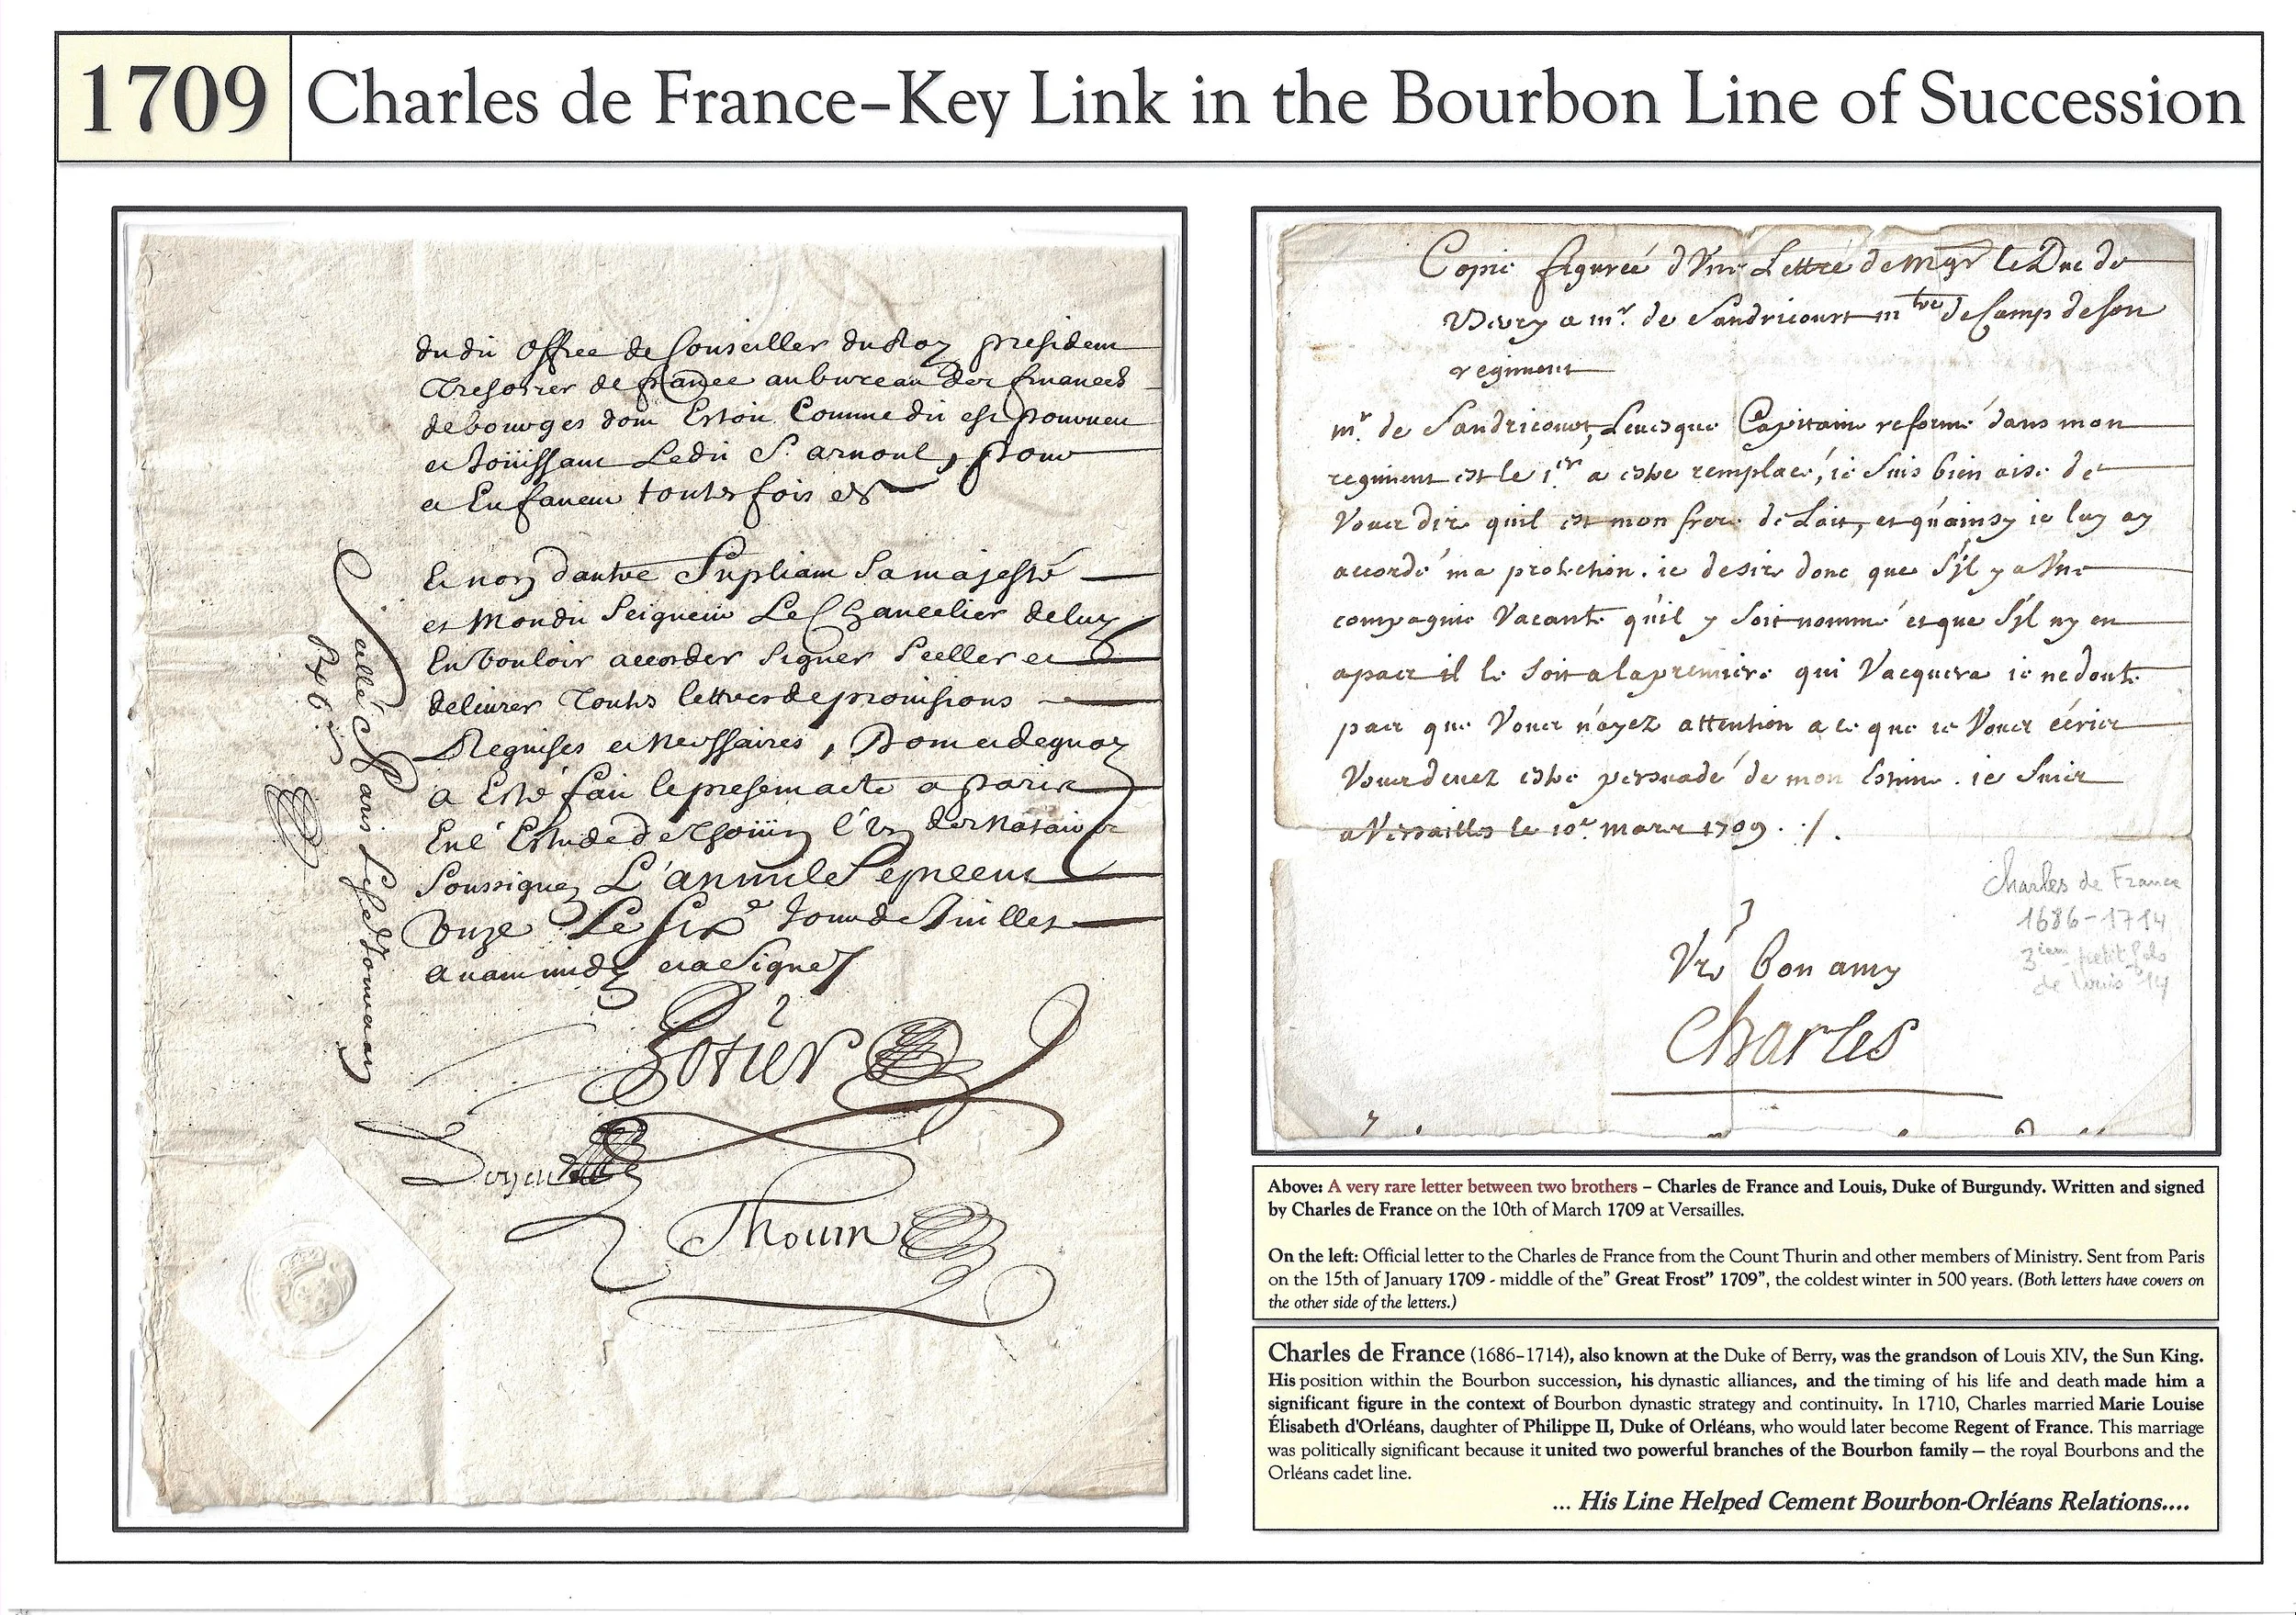 1709
Charles de France–Key Link in the Bourbon Line of Succession
dudit office de Conseiller du Roy president
Tresorier de france au bureau des finances
de bourges dont Estoit Comme dit est pourveu
et Joüissant Ledit S. arnoul, pour
et En faveur toutesfois
Et non dautre Supliant Sa majesté
et Mondit Seigneur Le Chancelier de luy
En vouloir accorder signer sceller et
delivrer Toutes lettres de provisions
Requises et Necessaires, Dont et de quoy
a Esté fait le present acte a paris
En l'Estude de Thoüin l'Un des Notaires
Soussignez L'an mil Sept cens
Onze Le six.e Jour de Juillet
avant midy et a Signé
Scellé a Paris Lesd. Jour et an
Thouin
Copie figureé d'Une Lettre de Mgr le Duc de
Berry a mr. de Sandricourt mtre de Camp de Son
regiment
mr. de Sandricourt, Levesque Capitaine reformé dans mon
regiment est le 1.er a estre remplacé, ie suis bien aise de
Vous dire quil est mon frere de Lait, et qu'ainsy ie luy ay
accordé ma protection. ie desire donc que s'il y a Une
compagnie Vacante qu'il y soit nommé et que s'il ny en
a pas il le soit a la premiere qui Vacquera ie ne doute
pas que Vous n'ayez attention a ce que ie Vous écris
Vous devez estre persuadé de mon Estime. ie suis
a Versailles le 10.e mars 1709. ·/.
Vre bon amy
Charles
Charles de France
1686-1714
3ieme petit fils
de Louis 14
Above: A very rare letter between two brothers – Charles de France and Louis, Duke of Burgundy. Written and signed
by Charles de France on the 10th of March 1709 at Versailles.
On the left: Official letter to the Charles de France from the Count Thurin and other members of Ministry. Sent from Paris
on the 15th of January 1709 - middle of the" Great Frost" 1709", the coldest winter in 500 years. (Both letters have covers on
the other side of the letters.)
Charles de France (1686–1714), also known at the Duke of Berry, was the grandson of Louis XIV, the Sun King.
His position within the Bourbon succession, his dynastic alliances, and the timing of his life and death made him a
significant figure in the context of Bourbon dynastic strategy and continuity. In 1710, Charles married Marie Louise
Élisabeth d'Orléans, daughter of Philippe II, Duke of Orléans, who would later become Regent of France. This marriage
was politically significant because it united two powerful branches of the Bourbon family — the royal Bourbons and the
Orléans cadet line.
... His Line Helped Cement Bourbon-Orléans Relations....